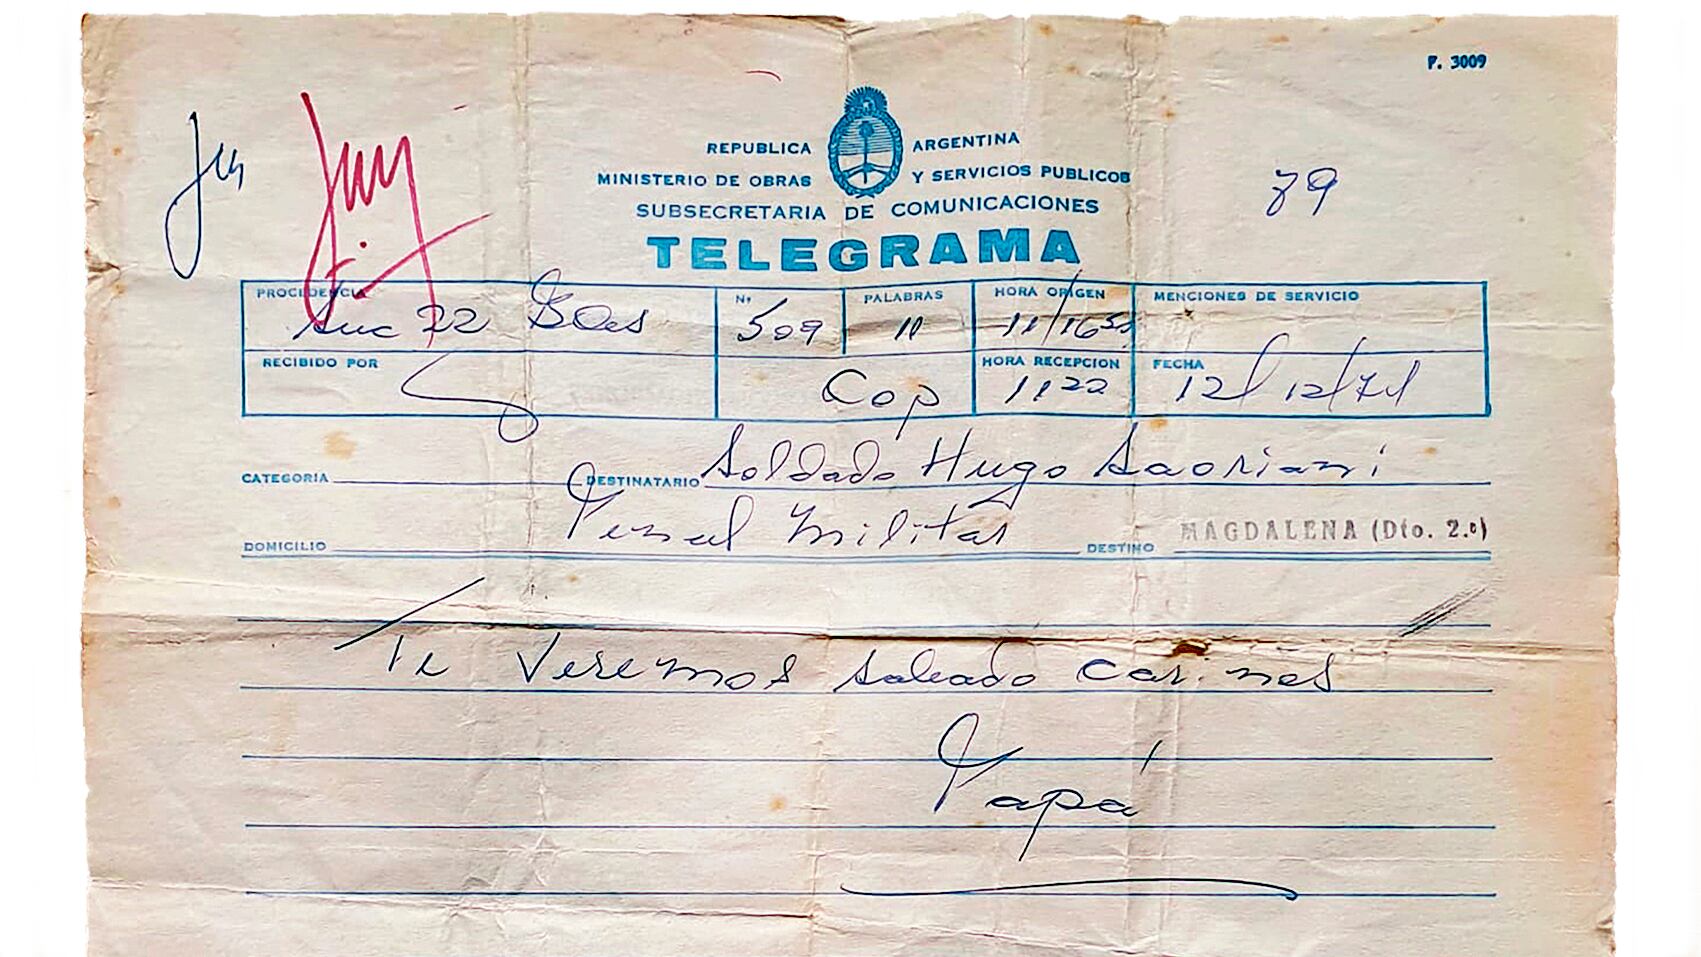 P. 3009
REPUBLICA ARGENTINA
MINISTERIO DE OBRAS Y SERVICIOS PUBLICOS
SUBSECRETARIA DE COMUNICACIONES
79
TELEGRAMA
PROCEDENCIA Nº PALABRAS HORA ORIGEN MENCIONES DE SERVICIO
Suc 22 BAs 509 11 11/16 55
RECIBIDO POR HORA RECEPCION FECHA
Cop 11 22 12/12/71
CATEGORIA DESTINATARIO Soldado Hugo
DOMICILIO Penal Militar DESTINO MAGDALENA (Dto. 2.º)
Te Veremos sabado cariños
Papá